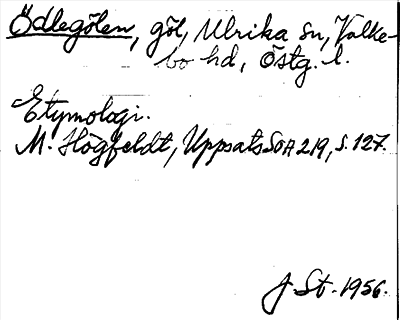 Ödlegölen, göl, Ulrika sn, Valke-
bo hd, Östg. l.
Etymologi.
M. Högfeldt, Uppsats SOA 219, s. 127.
J. St. 1956.